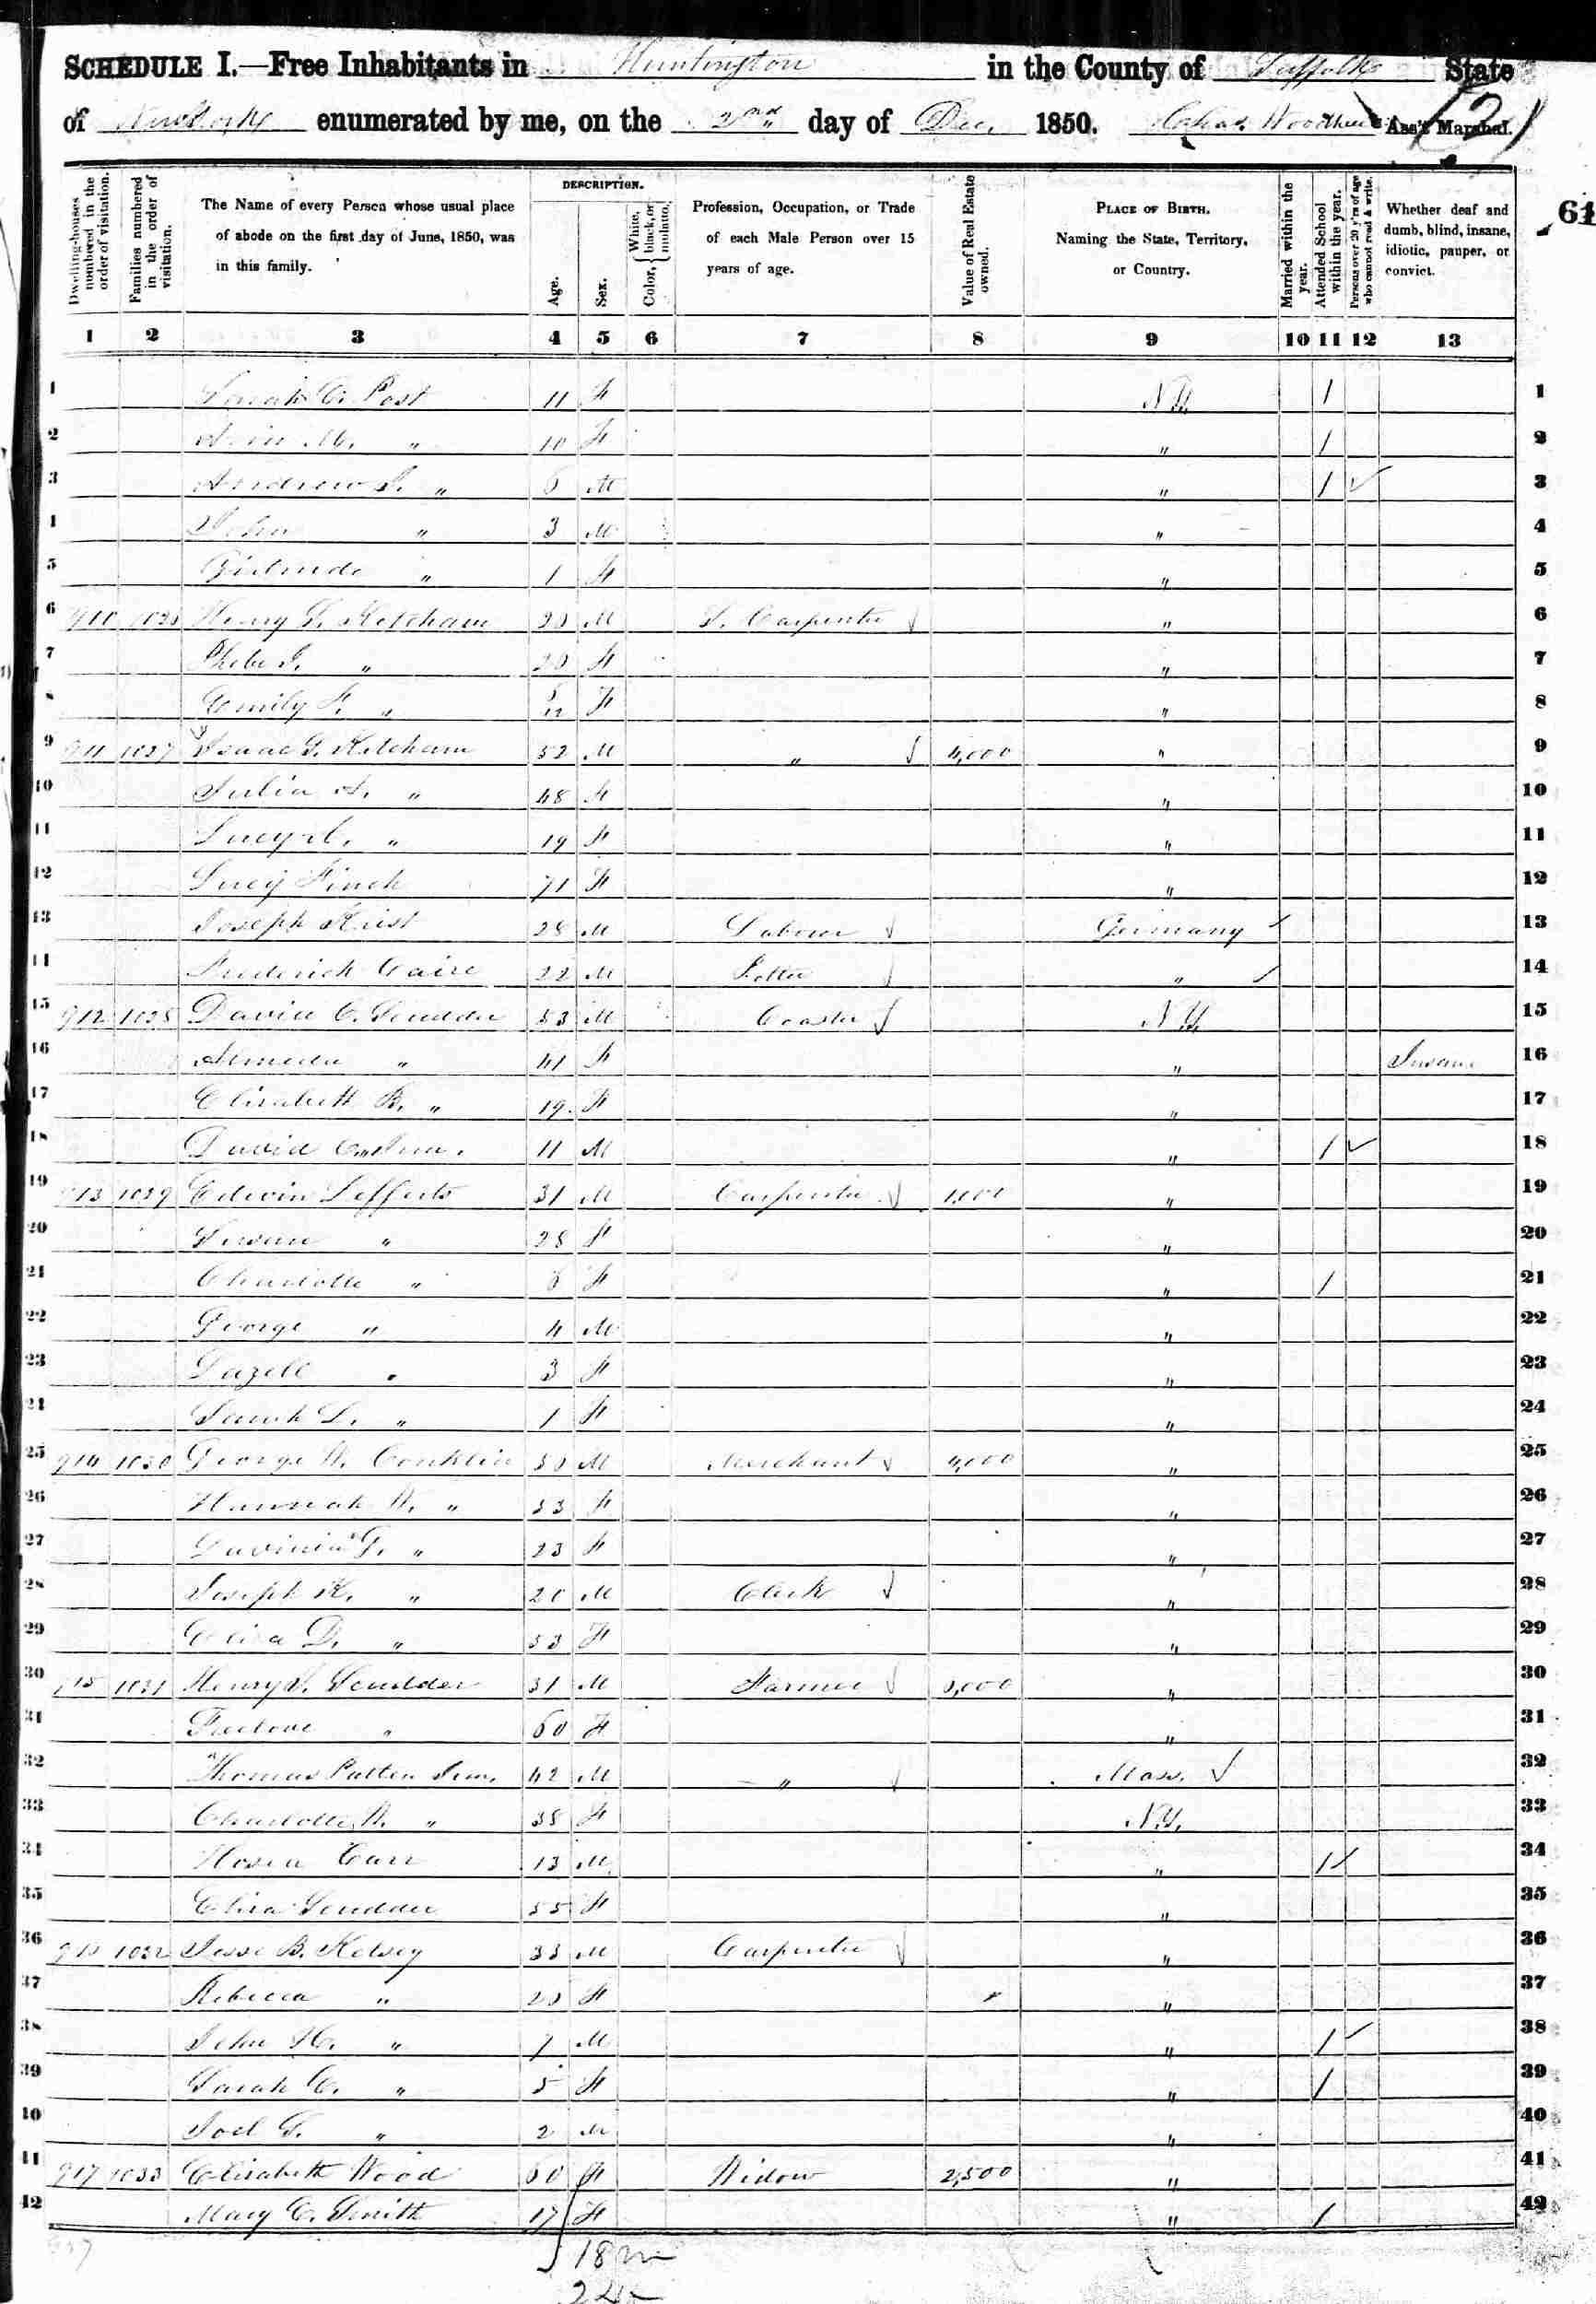 SCHEDULE I.—Free Inhabitants in Huntington in the County of Suffolk State
of New York enumerated by me, on the 2nd day of Dec. 1850. Chas. Ass't Marshal.
61
Dwelling-houses numbered in the order of visitation.
Families numbered in the order of visitation.
The Name of every Person whose usual place of abode on the first day of June, 1850, was in this family.
DESCRIPTION.
Age.
Sex.
Color, { White, black, or mulatto.
Profession, Occupation, or Trade of each Male Person over 15 years of age.
Value of Real Estate owned.
PLACE OF BIRTH. Naming the State, Territory, or Country.
Married within the year.
Attended School within the year.
Persons over 20 y'rs of age who cannot read & write.
Whether deaf and dumb, blind, insane, idiotic, pauper, or convict.
1 2 3 4 5 6 7 8 9 10 11 12 13
1 Sarah C. Post 11 F N.Y. 1 1
2 M. " 10 F " 1 2
3 Andrew J. " 6 M " 1 ✓ 3
4 John " 3 M " 4
5 Gertrude " 1 F " 5
6 910 1026 Henry S. Ketcham M S. Carpenter " 6
7 Phebe J. " 20 F " 7
8 Emily F. " F " 8
9 911 1027 Isaac G. Ketcham 52 M " 4,000 " 9
10 Julia A. " 48 F " 10
11 Lucy A. " 19 F " 11
12 Lucy Finch 71 F " 12
13 Joseph 28 M Laborer Germany 13
14 Frederick 22 M " 14
15 912 1028 David C. Scudder 53 M Coaster N.Y. 15
16 Almeda " 41 F " Insane 16
17 Elizabeth R. " 19 F " 17
18 David C. " Jun. 11 M " 1 ✓ 18
19 913 1029 Edwin Lefferts 31 M Carpenter 1,000 " 19
20 Susan " 28 F " 20
21 Charlotte " 6 F " 1 21
22 George " 4 M " 22
23 Dazell " 3 F " 23
24 Sarah L. " 1 F " 24
25 914 1030 George W. Conklin M Merchant 4,000 " 25
26 Hannah " F " 26
27 Lavinia G. " 23 F " 27
28 Joseph K. " 20 M Clerk " 28
29 Eliza D. " 53 F " 29
30 915 1031 Henry S. Scudder 31 M Farmer " 30
31 Freelove " 60 F " 31
32 Thomas Patten Jun. 42 M " Mass. 32
33 Charlotte A. " 38 F N.Y. 33
34 Hosea Carr 13 M " 1 ✓ 34
35 Eliza Scudder 55 F " 35
36 1032 Jesse B. Kelsey 33 M Carpenter " 36
37 Rebecca " F " 37
38 John H. " 7 M " 1 ✓ 38
39 Sarah C. " 5 F " 1 39
40 Joel G. " 2 M " 40
41 917 1033 Elizabeth Wood 60 F Widow 2,500 " 41
42 Mary E. Smith 17 F " 1 42
18 m